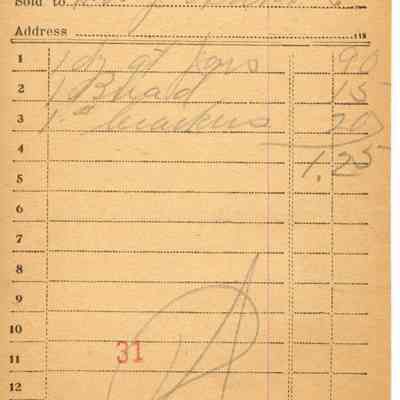 Sold to
Address 118
1 1 dz qt Jars 90
2 1 Bread 15
3 1 # crackers 20
4 1.25
5
6
7
8
9
10
11 31
12